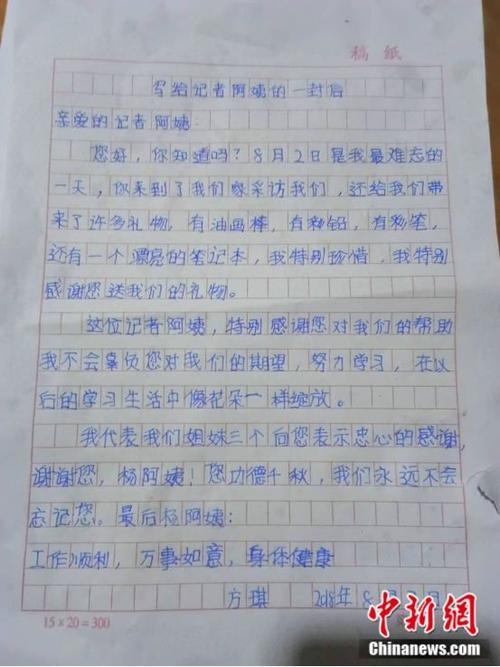 稿 纸
写给记者阿姨的一封后
亲爱的记者阿姨:
您好,你知道吗?8月2日是我最难忘的
一天,你来到了我们家采访我们,还给我们带
来了许多礼物,有油画棒,有彩铅,有彩笔,
还有一个漂亮的笔记本,我特别珍惜,我特别
感谢您送我们的礼物。
这位记者阿姨,特别感谢您对我们的帮助
我不会辜负您对我们的期望,努力学习,在以
后的学习生活中像花朵一样绽放。
我代表我们姐妹三个向您表示忠心的感谢,
谢谢您,杨阿姨!您功德千秋,我们永远不会
忘记您。最后杨阿姨:
工作顺利,万事如意,身体健康
方琪 2018年8月
15×20=300
中新网
Chinanews.com